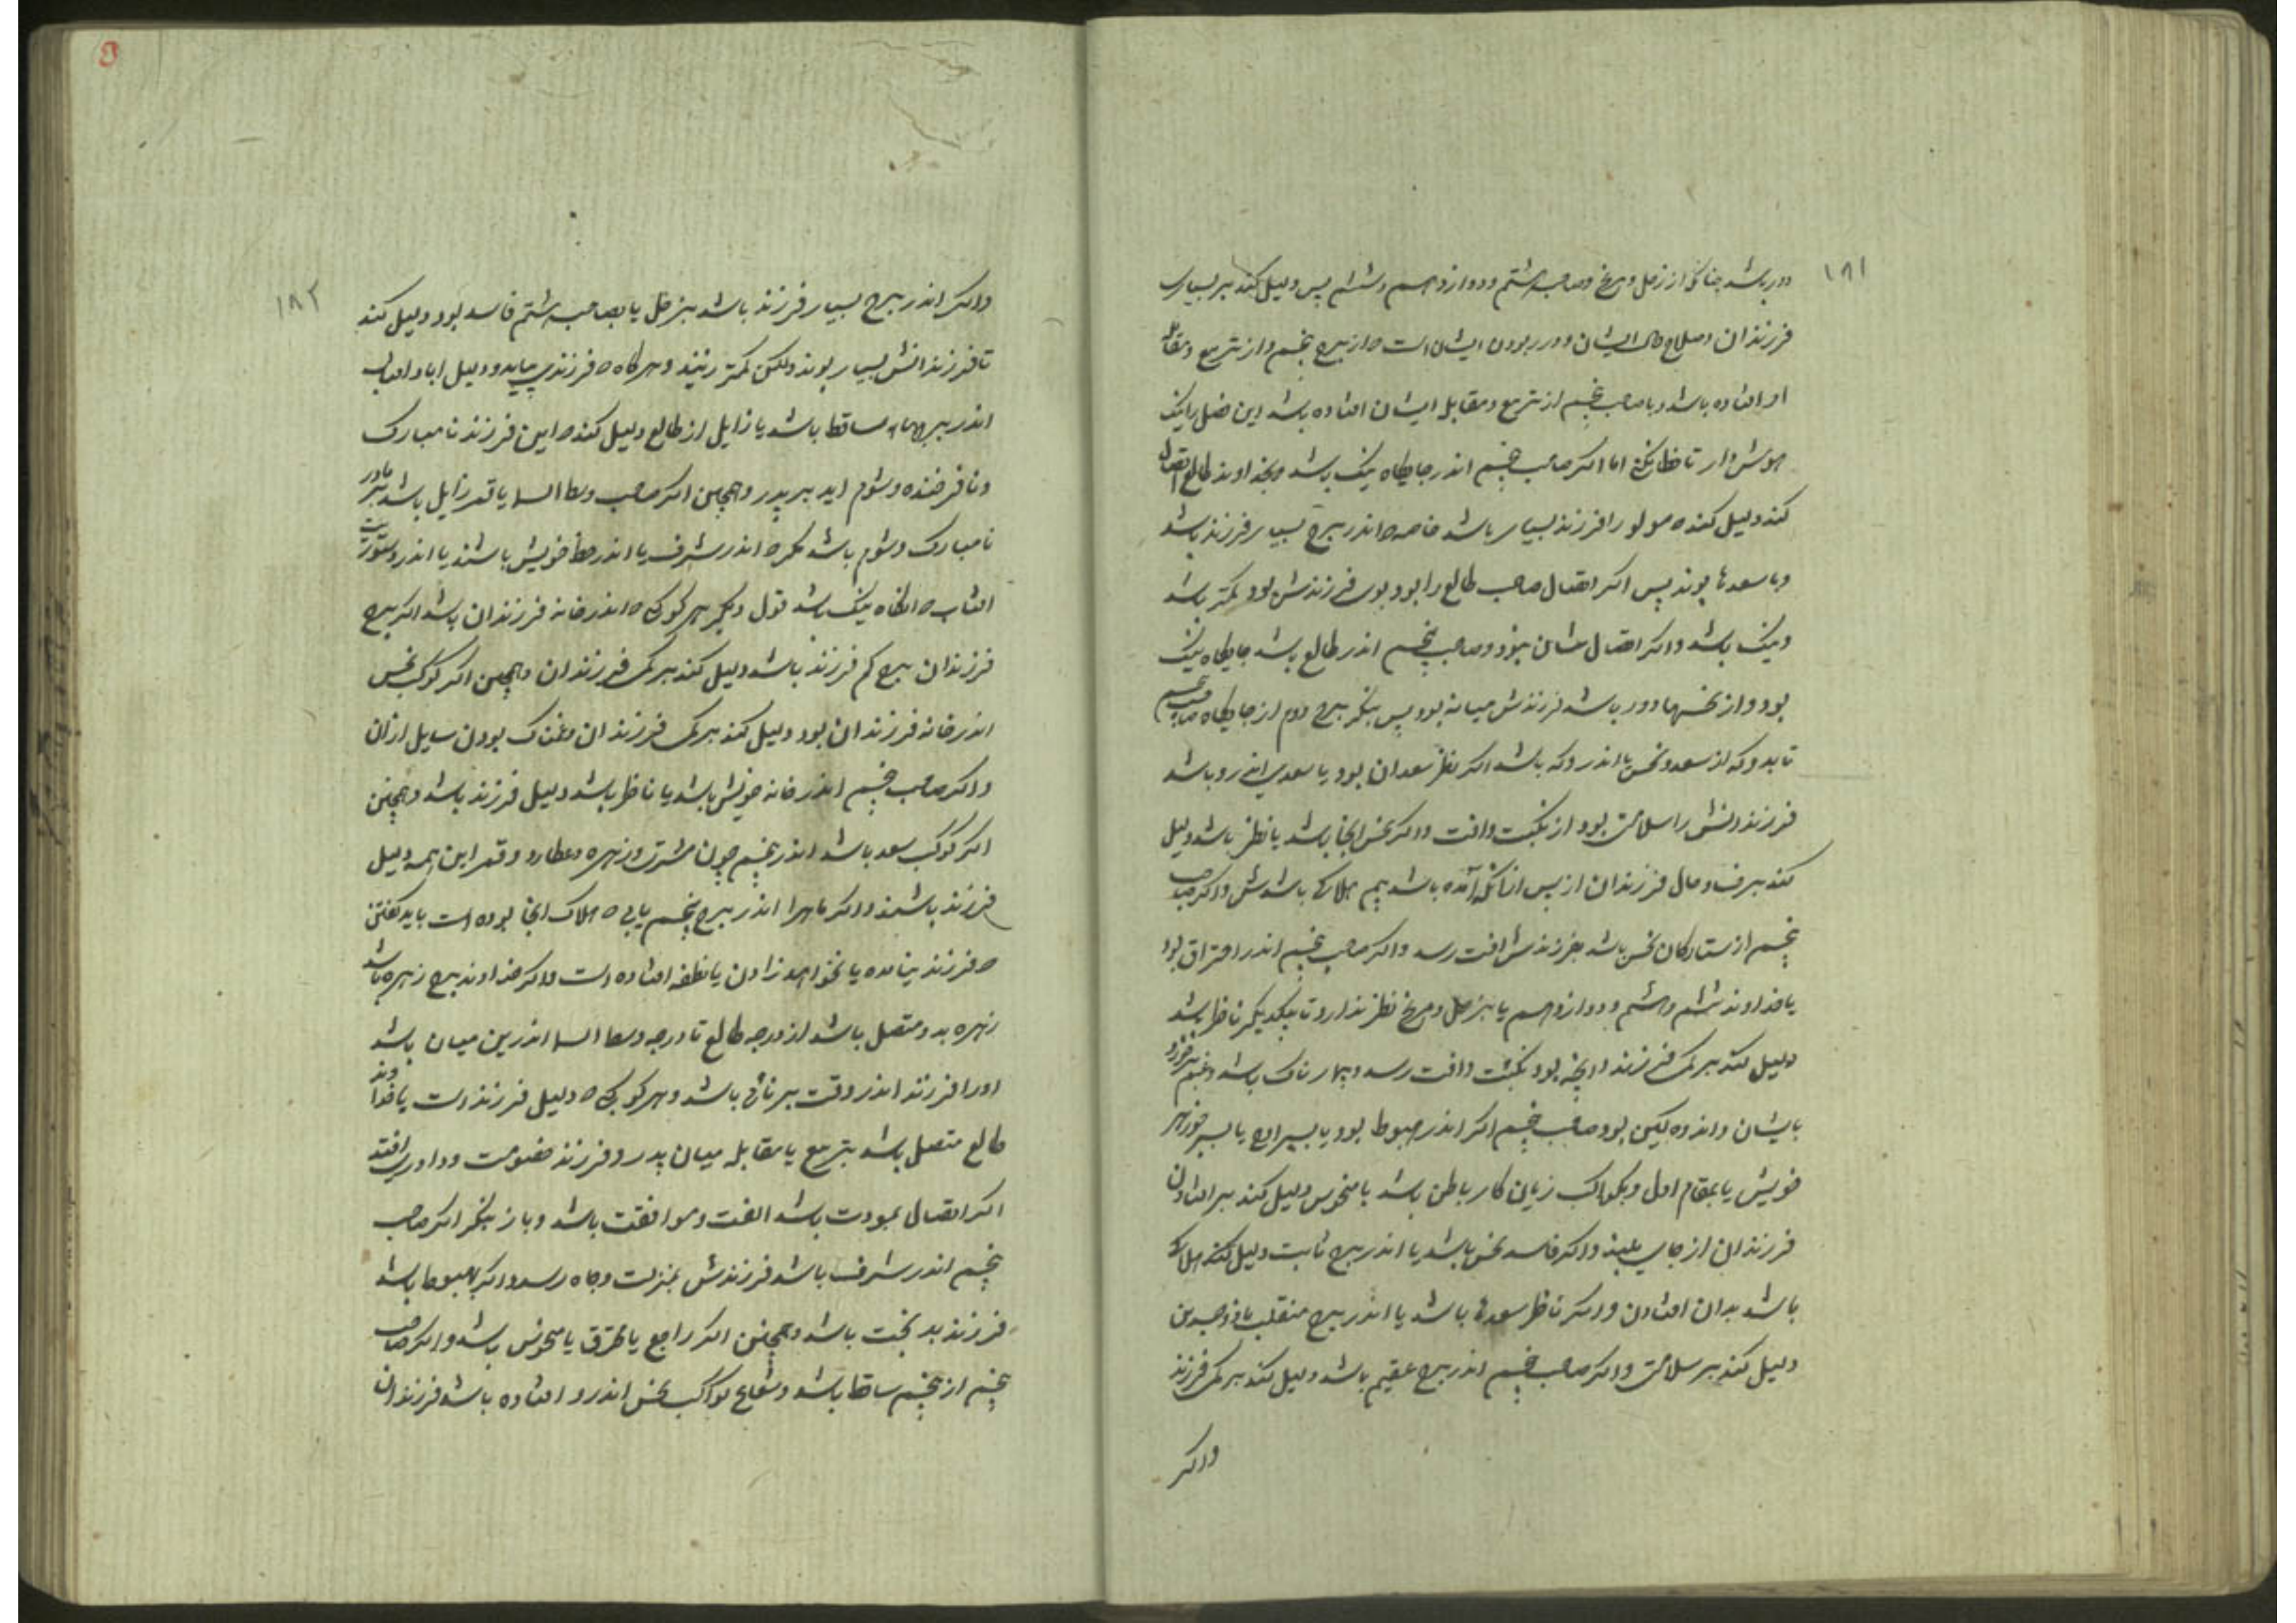 ١٨١
دور باشد چنانک از زحل و مریخ و صاحب هشتم و دوازدهم و ششم پس دلیل کند بر بسیاری
فرزندان و صلاح حال ایشان و دور بودن ایشان است که از برج پنجم و از تربیع و مقابله
او افتاده باشد و یا صاحب پنجم از تربیع و مقابل ایشان افتاده باشد این فصل را نیک
هوش دار تا خطا نکنی اما اکر صاحب پنجم اندر جایکاه نیک باشد و بخداوند طالع اتصال
کند دلیل کند که مولود را فرزند بسیار باشد خاصه که اندر برج بسیار فرزند باشد
و با سعدها بوند پس اکر اتصال صاحب طالع را بود بوی فرزندش بود کمتر باشد
و نیک باشد و اکر اتصال شان نبود و صاحب پنجم اندر طالع باشد جایکاه نیک
بود و از نحسها دور باشد فرزندش میانه بود پس بنکر ببرج دوم از جایکاه صاحب پنجم
تا بدو که از سعد و نحس یا اندرو که باشد اکر نظر سعدان بود یا سعدی اندرو باشد
فرزندانش را سلامتی بود از نکبت و آفت و اکر نحس انجا باشد یا نظر باشد دلیل
کند بر فساد حال فرزندان از پس ازانکه آمده باشد بیم هلاکی باشدش و اکر صاحب
پنجم از ستارکان نحس باشد بفرزندش آفت رسد و اکر صاحب پنجم اندر احتراق بود
یا خداوند ششم و هشتم و دوازدهم یا بزحل و مریخ نظر ندارد تا بیکدیکر ناظر باشد
دلیل کند بر کمی فرزند و آنچه بود نکبت و آفت رسد و بیمارناک باشد و غم خورد
بایشان و اندوهکین بود صاحب پنجم اکر اندر هبوط بود یا بسر اوج یا بسر جوزهر
خویش یا بمقام اول و بکواکب زیان کار باطن باشد یا منحوس دلیل کند بر افتادن
فرزندان از جای بلند و اکر فاسد نحس باشد یا اندر برج ثابت دلیل کند هلاک
باشد بدان افتادن و اکر ناظر سعدی باشد یا اندر برج منقلب یا ذوجسدین
دلیل کند بر سلامتی و اکر صاحب پنجم اندر برج عقیم باشد دلیل کند بر کمی فرزند
واکر
١٨٢
واکر اندر برج بسیار فرزند باشد بزحل یا بصاحب هشتم فاسد بود دلیل کند
تا فرزندانش بسیار بوند ولکن کمتر زیند و هرکاه که فرزندی بیاید و دلیل
اندر برجهاء ساقط باشد یا زایل از طالع دلیل کند که این فرزند نامبارک
و نافرخنده و شوم اید بر پدر و همچنین اکر صاحب وسط السما یا قمر زایل باشد بر مادر
نامبارک و شوم باشد مکر که اندر شرف یا اندر حظ خویش باشند یا اندر دستوریت
افتاب که انکاه نیک باشد قول دیکر هر کوکبی که اندر خانه فرزندان باشد اکر برج
فرزندان برج کم فرزند باشد دلیل کند بر کمی فرزندان و همچنین اکر کوکب نحس
اندر خانه فرزندان بود دلیل کند بر کمی فرزندان و غمناک بودن سایل ازان
و اکر صاحب پنجم اندر خانه خویش باشد یا ناظر باشد دلیل فرزند باشد و همچنین
اکر کوکب سعد باشد اندر پنجم چون مشتری و زهره و عطارد و قمر این همه دلیل
فرزند باشند و اکر ماه را اندر برج پنجم یابی که هلاک انجا بوده است باید کفتن
که فرزند بنامده یا نخواهد زادن یا نطفه افتاده است و اکر خداوند برج زهره باشد
زهره بدو متصل باشد از درجه طالع تا درجه وسط السما اندرین میان باشد
او را فرزند اندر وقت برنائی باشد و هر کوکبی که دلیل فرزند است یا خداوند
طالع متصل باشد بتربیع یا مقابله میان پدر و فرزند خصومت و داوری افتد
اکر اتصال بمودت باشد الفت و موافقت باشد و باز بنکر اکر صاحب
پنجم اندر شرف باشد فرزندش بمنزلت و جاه رسد و اکر بهبوط باشد
فرزند بدبخت باشد و همچنین اکر راجع یا محترق یا منحوس باشد و اکر صاحب
پنجم از پنجم ساقط باشد و شعاع کواکب نحس اندرو افتاده باشد فرزندان